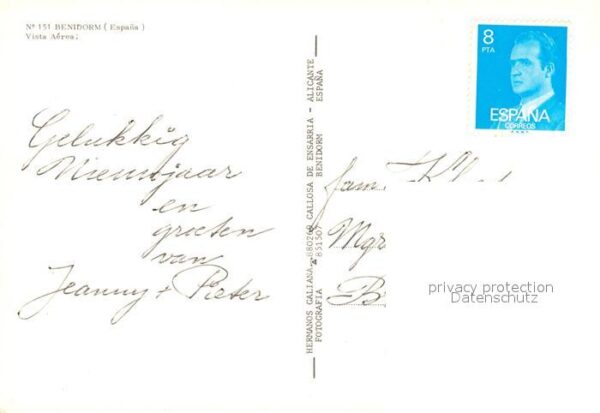 Nº 151 BENIDORM ( España )
Vista Aérea:
Gelukkig
Nieuwjaar
en
groeten
van
Jeanny + Pieter
HERMANOS GALIANA
CALLOSA DE ENSARRIA - ALICANTE
FOTOGRAFIA
BENIDORM
ESPAÑA
8
PTA
ESPAÑA
CORREOS
fam.
Mgr
B
privacy protection
Datenschutz